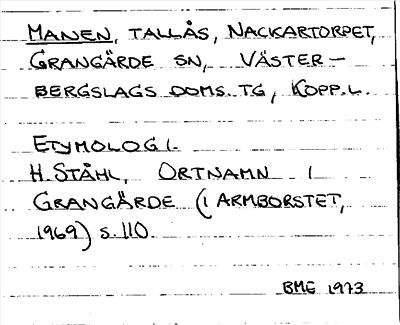 MANEN, TALLÅS, NACKARTORPET,
GRANGÄRDE SN, VÄSTER-
BERGSLAGS DOMS. TG, KOPP.L.
ETYMOLOGI.
H. STÅHL, ORTNAMN I
GRANGÄRDE (I ARMBORSTET,
1969) S. 110.
BME 1973